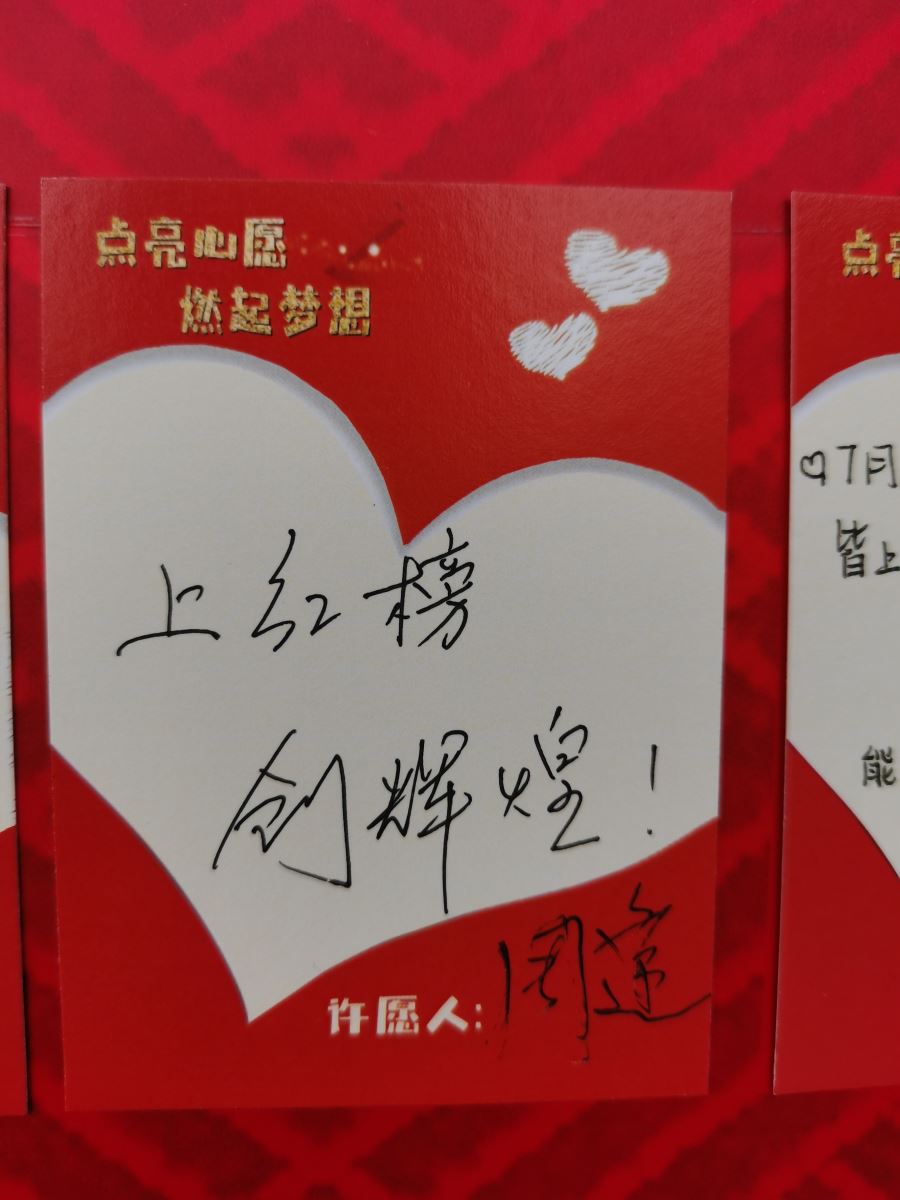 点亮心愿
燃起梦想
上红榜
创辉煌！
许愿人：周途
点亮
♡7月
皆上
能